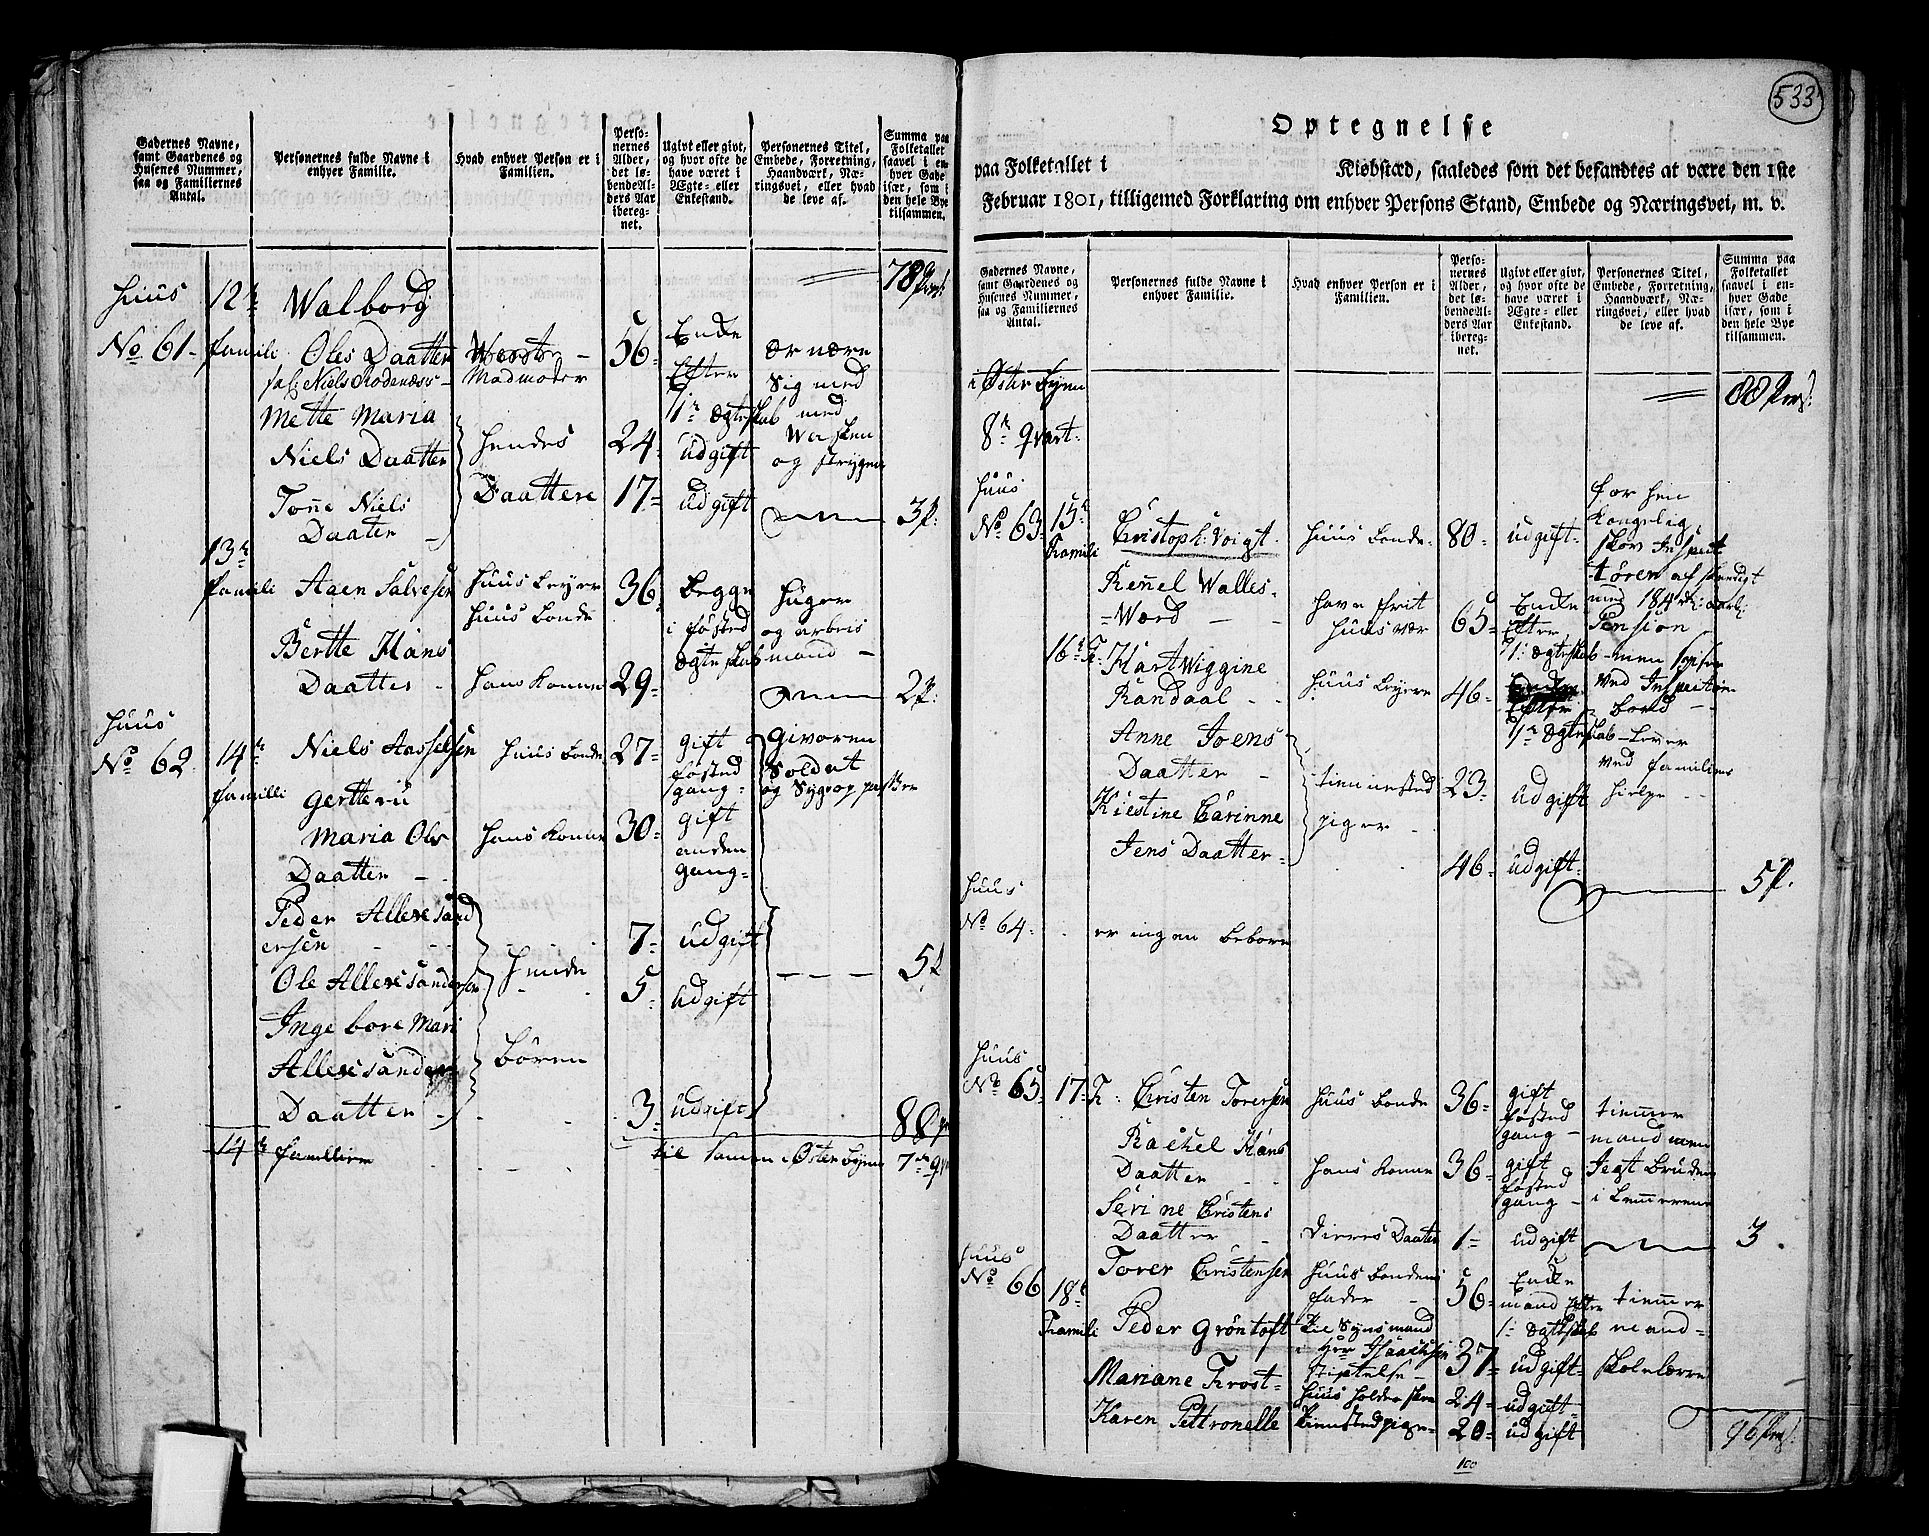 Gadernes Navne,
samt Gaardenes og
Husenes Nummer,
saa og Familiernes
Antal.
Personernes fulde Navne i
enhver Familie.
Hvad enhver Person er i
Familien.
Perso-
nernes
Alder,
det lø-
bende Al-
ders Aar
iberegnet.
Ugivt eller givt,
og hvor ofte de
have været i
Ægte- eller
Enkestand.
Personernes Titel,
Embede, Forretning,
Haandværk, Næ-
ringsvei, eller hvad
de leve af.
Summa paa
Folketallet
saavel i en-
hver Gade
især, som i
den hele Bye
tilsammen.
78 Pers:
Huus
No 61
12te
familie
Walborg
Oles Daatter
sal: Niels Rodenæss
Madmoder
56
Enke
Efter
1te Ægteskab
Ernære
sig med
Wasken
og strygen
Mette Maria
Niels Daatter
Hendes
24
udgift
Tonne Niels
Daater
Daattere
17
udgift
3 p.
13te
familie
Aaen Salvesen
Huus Leyer
Huus Bonde
36
Begge
i føsted
Ægteskab
Huger
og arbeis
mand
Bertte Hans
Daatter
Hans Konne
29
2 p.
Huus
No 62
14te
familli
Niels Aasselsen
Huus Bonde
27
gift
føsted
gang
Givoren
Soldat
Gertteru
Maria Ols
Daatter
Hans Konne
30
gift
anden
gang
Peder Allexsand
ersen
7
udgift
Ole Allexsandersen
Hende
5
udgift
5 p
Inge bore Mari
Allexsanders
Daatter
Børen
3
udgift
88 p
14 familier
til samen i Øster Byen 7de qv
533
Optegnelse
paa Folketallet i Kiøbstæd, saaledes som det befandtes at være den 1ste
Februar 1801, tilligemed Forklaring om enhver Persons Stand, Embede og Næringsvei, m. v.
Gadernes Navne,
samt Gaardenes og
Husenes Nummer,
saa og Familiernes
Antal.
Personernes fulde Navne i
enhver Familie.
Hvad enhver Person er i
Familien.
Perso-
nernes
Alder,
det lø-
bende Al-
ders Aar
iberegnet.
Ugivt eller givt,
og hvor ofte de
have været i
Ægte- eller
Enkestand.
Personernes Titel,
Embede, Forretning,
Haandværk, Næ-
ringsvei, eller hvad
de leve af.
Summa paa
Folketallet
saavel i en-
hver Gade
især, som i
den hele Bye
tilsammen.
Øster Byen
88 Pers:
8te qvart
Huus
No 63
15te
Famili
Christoph: Voigt
Huus Bonde
80
udgift
for hen
Kongelig
skov Inspect
tøren afskediget
med 184 rd: aarl:
Pension
Rennel Walles
Wærd
Have frit
Huus vær
65
Enke
Efter
1: Ægteskab
men spiser
ved Inspectøren
Bord
16te F.
Hartwiggine
Randaal
Huus Leyere
46
Efter
1te Ægteskab
Lever
ved familiens
Hielpe
Anne Joens
Daatter
tiennested
23
udgift
Kiestine Carinne
Jens Daatter
piger
46
udgift
5 p.
Huus
No 64
er ingen Beboere
Huus
No 65
17 F.
Christen Torersen
Huus Bonde
36
gift
føsted
gang
timmer
mand men
Rachel Hans
Daatter
Hans Konne
36
gift
føsted
gang
Jegt Bruden
Serine Cristens
Daatter
Dieres Daater
1
udgift
3
Torer Christensen
Huus Bondens
fader
56
Enke
mand Efter
1: Ægteskab
timmer
mand
Huus
No 66
18te
Famili
Peder Grøntoft
37
udgift
skolelærer
Mariane Frost
Huus holderske
24
udgift
Karen Pettronelle
Tiennestedpige
20
udgift
96 Pers:
100